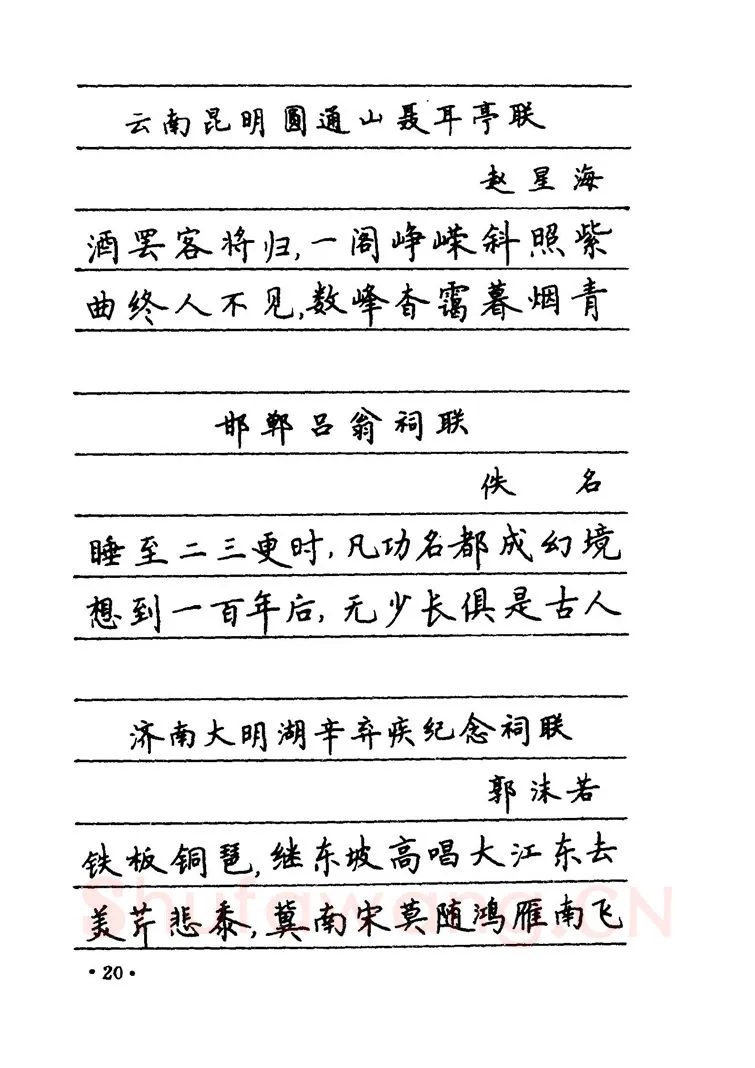 云南昆明圆通山聂耳亭联
赵星海
酒罢客将归,一阁峥嵘斜照紫
曲终人不见,数峰杳霭暮烟青
邯郸吕翁祠联
佚 名
睡至二三更时,凡功名都成幻境
想到一百年后,无少长俱是古人
济南大明湖辛弃疾纪念祠联
郭沫若
铁板铜琶,继东坡高唱大江东去
美芹悲黍,冀南宋莫随鸿雁南飞
Shufawang.CN
·20·